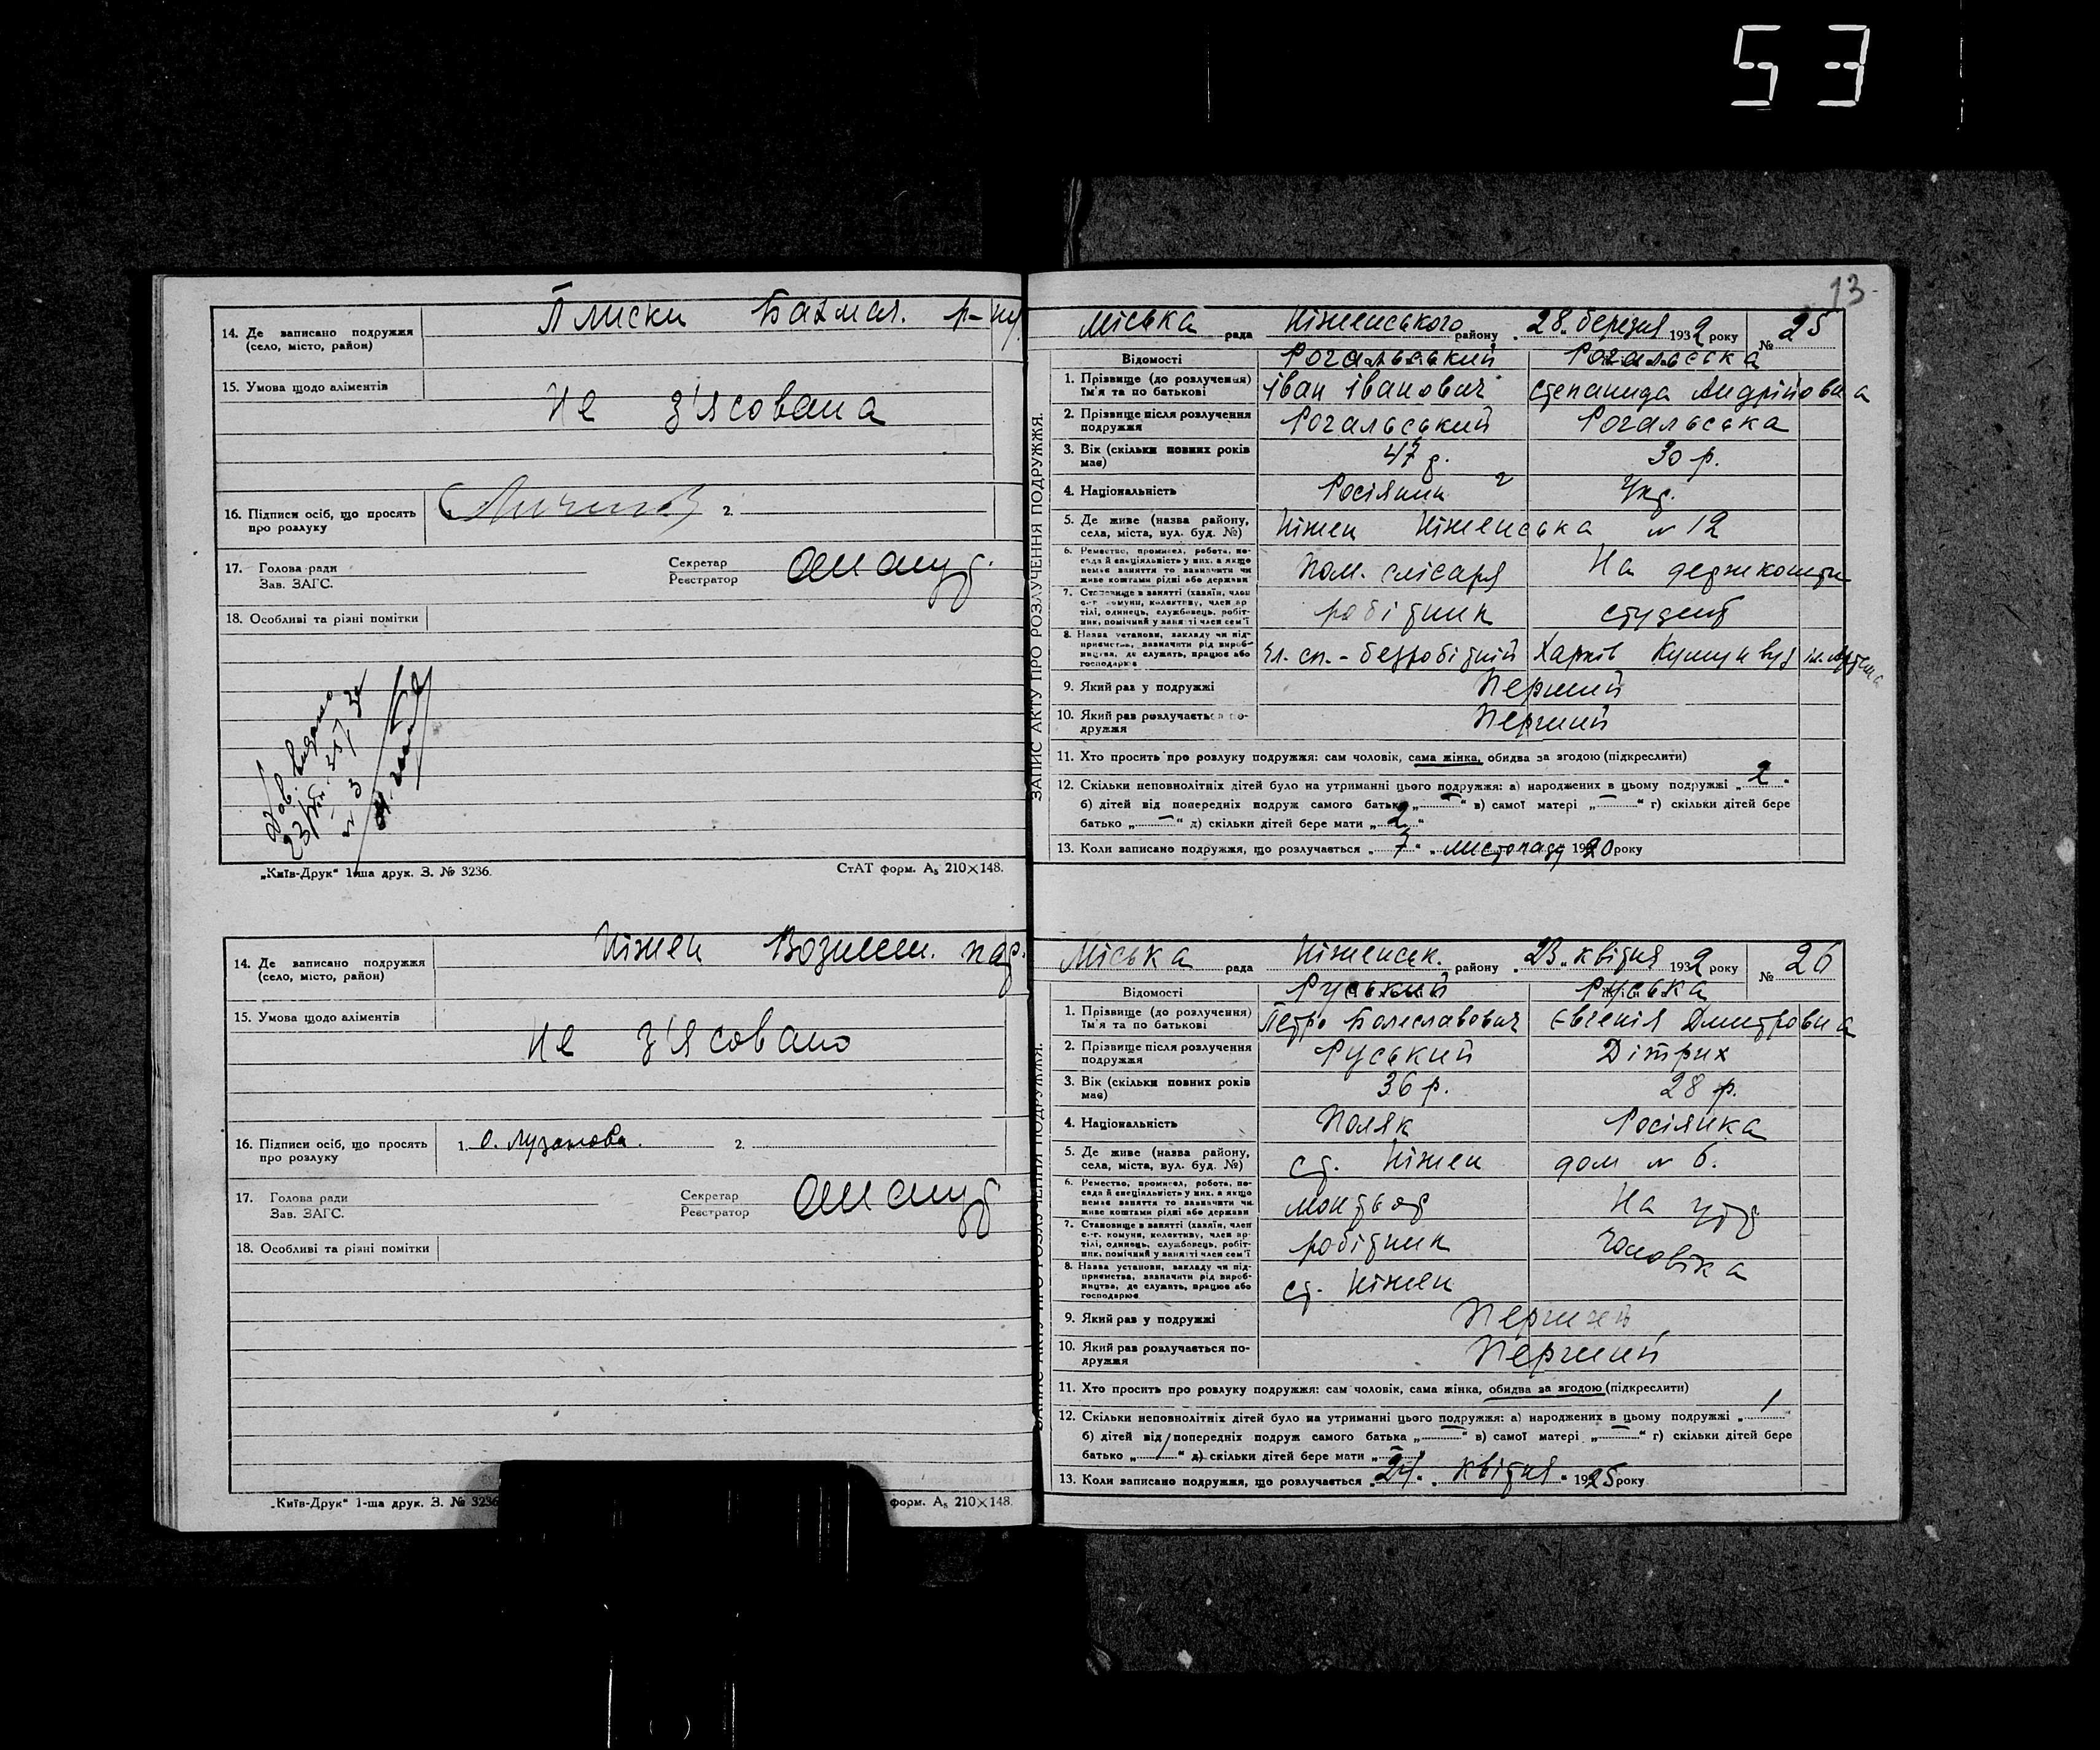 53
14. Де записано подружжя (село, місто, район)
Плиски Бахмач. р-ну
15. Умова щодо аліментів
Не з'ясована
16. Підписи осіб, що просять про розлуку
2.
17. Голова ради
Зав. ЗАГС.
Секретар
Реєстратор
18. Особливі та різні помітки
„Київ-Друк“ 1-ша друк. З. № 3236.
СтАТ форм. А₅ 210×148.
14. Де записано подружжя (село, місто, район)
Ніжен Вознесен. пар.
15. Умова щодо аліментів
Не з'ясовано
16. Підписи осіб, що просять про розлуку
1. О. Лузанова. 2.
17. Голова ради
Зав. ЗАГС.
Секретар
Реєстратор
18. Особливі та різні помітки
„Київ-Друк“ 1-ша друк. З. № 3236
форм. А₅ 210×148.
13
ЗАПИС АКТУ ПРО РОЗЛУЧЕННЯ ПОДРУЖЖЯ.
Міська рада Ніженського району „28„ березня 1932 року № 25
Відомості Рогальський Рогальська
1. Прізвище (до розлучення) Ім'я та по батькові Іван Іванович Степанида Андріївна
2. Прізвище після розлучення подружжя Рогальський Рогальська
3. Вік (скільки повних років має) 47 р. 30 р.
4. Національність Росіянин Укр.
5. Де живе (назва району, села, міста, вул. буд. №) Ніжен Ніженська № 12
6. Ремество, промисел, робота, посада й спеціяльність у них, а якщо немає заняття то зазначити чи живе коштами рідні або держави Пом. слісаря На держкошти
7. Становище в занятті (хазяїн, член с.-г. комуни, колективу, член артілі, одинець, службовець, робітник, помічний у занятті член сем'ї робітник студент
8. Назва установи, закладу чи підприємства, зазначити рід виробництва, де служать, працює або господарює Чл. сп. - безробітній Харків
9. Який раз у подружжі Перший
10. Який раз розлучається подружжя Перший
11. Хто просить про розлуку подружжя: сам чоловік, сама жінка, обидва за згодою (підкреслити)
12. Скільки неповнолітніх дітей було на утриманні цього подружжя: а) народжених в цьому подружжі „2“
б) дітей від попередніх подруж самого батька „—“ в) самої матері „—“ г) скільки дітей бере
батько „—“ д) скільки дітей бере мати „2“
13. Коли записано подружжя, що розлучається „7“ „листопаду 1920 року
ЗАПИС АКТУ ПРО РОЗЛУЧЕННЯ ПОДРУЖЖЯ.
Міська рада Ніженськ. району „23„ квітня 1932 року № 26
Відомості Руський Руська
1. Прізвище (до розлучення) Ім'я та по батькові Петро Болеславович Євгенія Дмитровна
2. Прізвище після розлучення подружжя Руський Дітрих
3. Вік (скільки повних років має) 36 р. 28 р.
4. Національність Поляк Росіянка
5. Де живе (назва району, села, міста, вул. буд. №) ст. Ніжен дом № 6.
6. Ремество, промисел, робота, посада й спеціяльність у них, а якщо немає заняття то зазначити чи живе коштами рідні або держави монтьор На утр
7. Становище в занятті (хазяїн, член с.-г. комуни, колективу, член артілі, одинець, службовець, робітник, помічний у занятті член сем'ї робітник чоловіка
8. Назва установи, закладу чи підприємства, зазначити рід виробництва, де служать, працює або господарює ст. Ніжен
9. Який раз у подружжі Перший
10. Який раз розлучається подружжя Перший
11. Хто просить про розлуку подружжя: сам чоловік, сама жінка, обидва за згодою (підкреслити)
12. Скільки неповнолітніх дітей було на утриманні цього подружжя: а) народжених в цьому подружжі „1“
б) дітей від попередніх подруж самого батька „—“ в) самої матері „—“ г) скільки дітей бере
батько „1“ д) скільки дітей бере мати „—“
13. Коли записано подружжя, що розлучається „24„ „квітня“ 1925 року